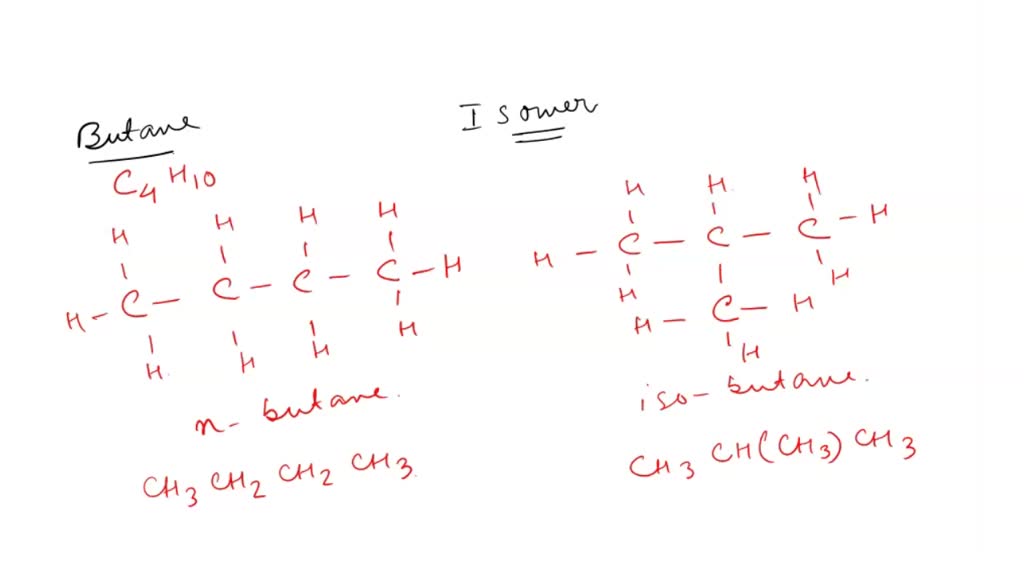 Butane
Isomer
C4H10
H H H H
H - C - C - C - C - H
H H H H
n- butane.
CH3 CH2 CH2 CH3
H H H
H - C - C - C - H
H H
H - C - H
H
iso- butane.
CH3 CH(CH3) CH3